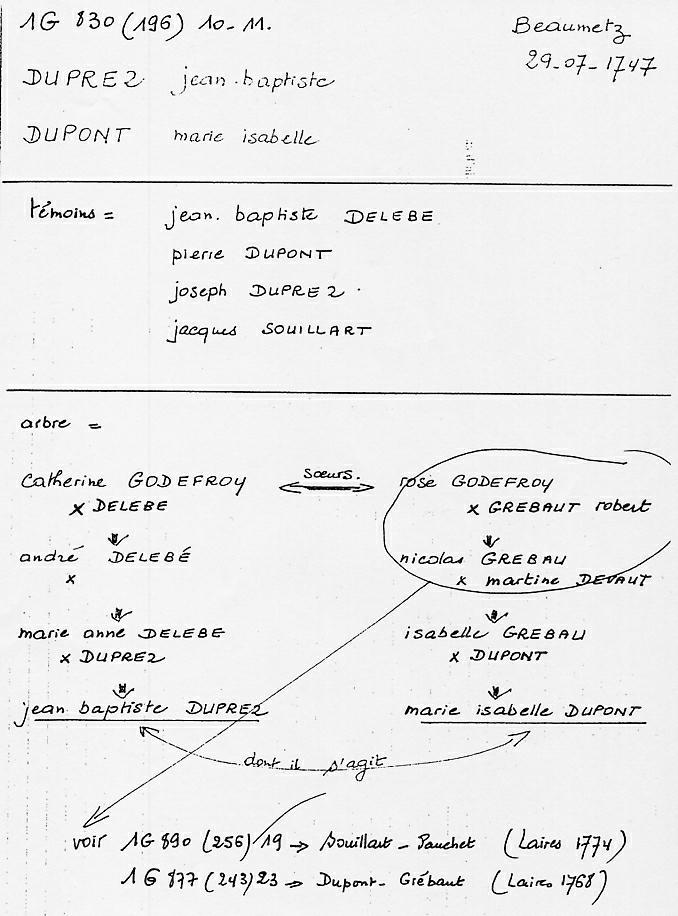 1G 830 (196) 10-11. Beaumetz
29-07-1747
DUPREZ jean-baptiste
DUPONT marie isabelle
témoins = jean. baptiste DELEBE
pierre DUPONT
joseph DUPREZ.
jacques SOUILLART
arbre =
Catherine GODEFROY sœurs. rose GODEFROY
x DELEBE x GREBAUT robert
andré DELEBÉ nicolas GREBAU
x x martine DEVAUT
marie anne DELEBE isabelle GREBAU
x DUPREZ x DUPONT
jean baptiste DUPREZ marie isabelle DUPONT
dont il s'agit
voir 1G 890 (256) 19 → Souillart - Panchet (Laires 1774)
1G 877 (243) 23 → Dupont - Grébaut (Laires 1768)